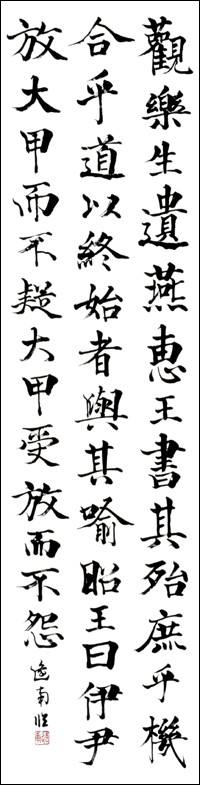 觀樂生遺燕惠王書其殆庶乎機
合乎道以終始者與其喻昭王曰伊尹
放大甲而不疑大甲受放而不怨
遙南临